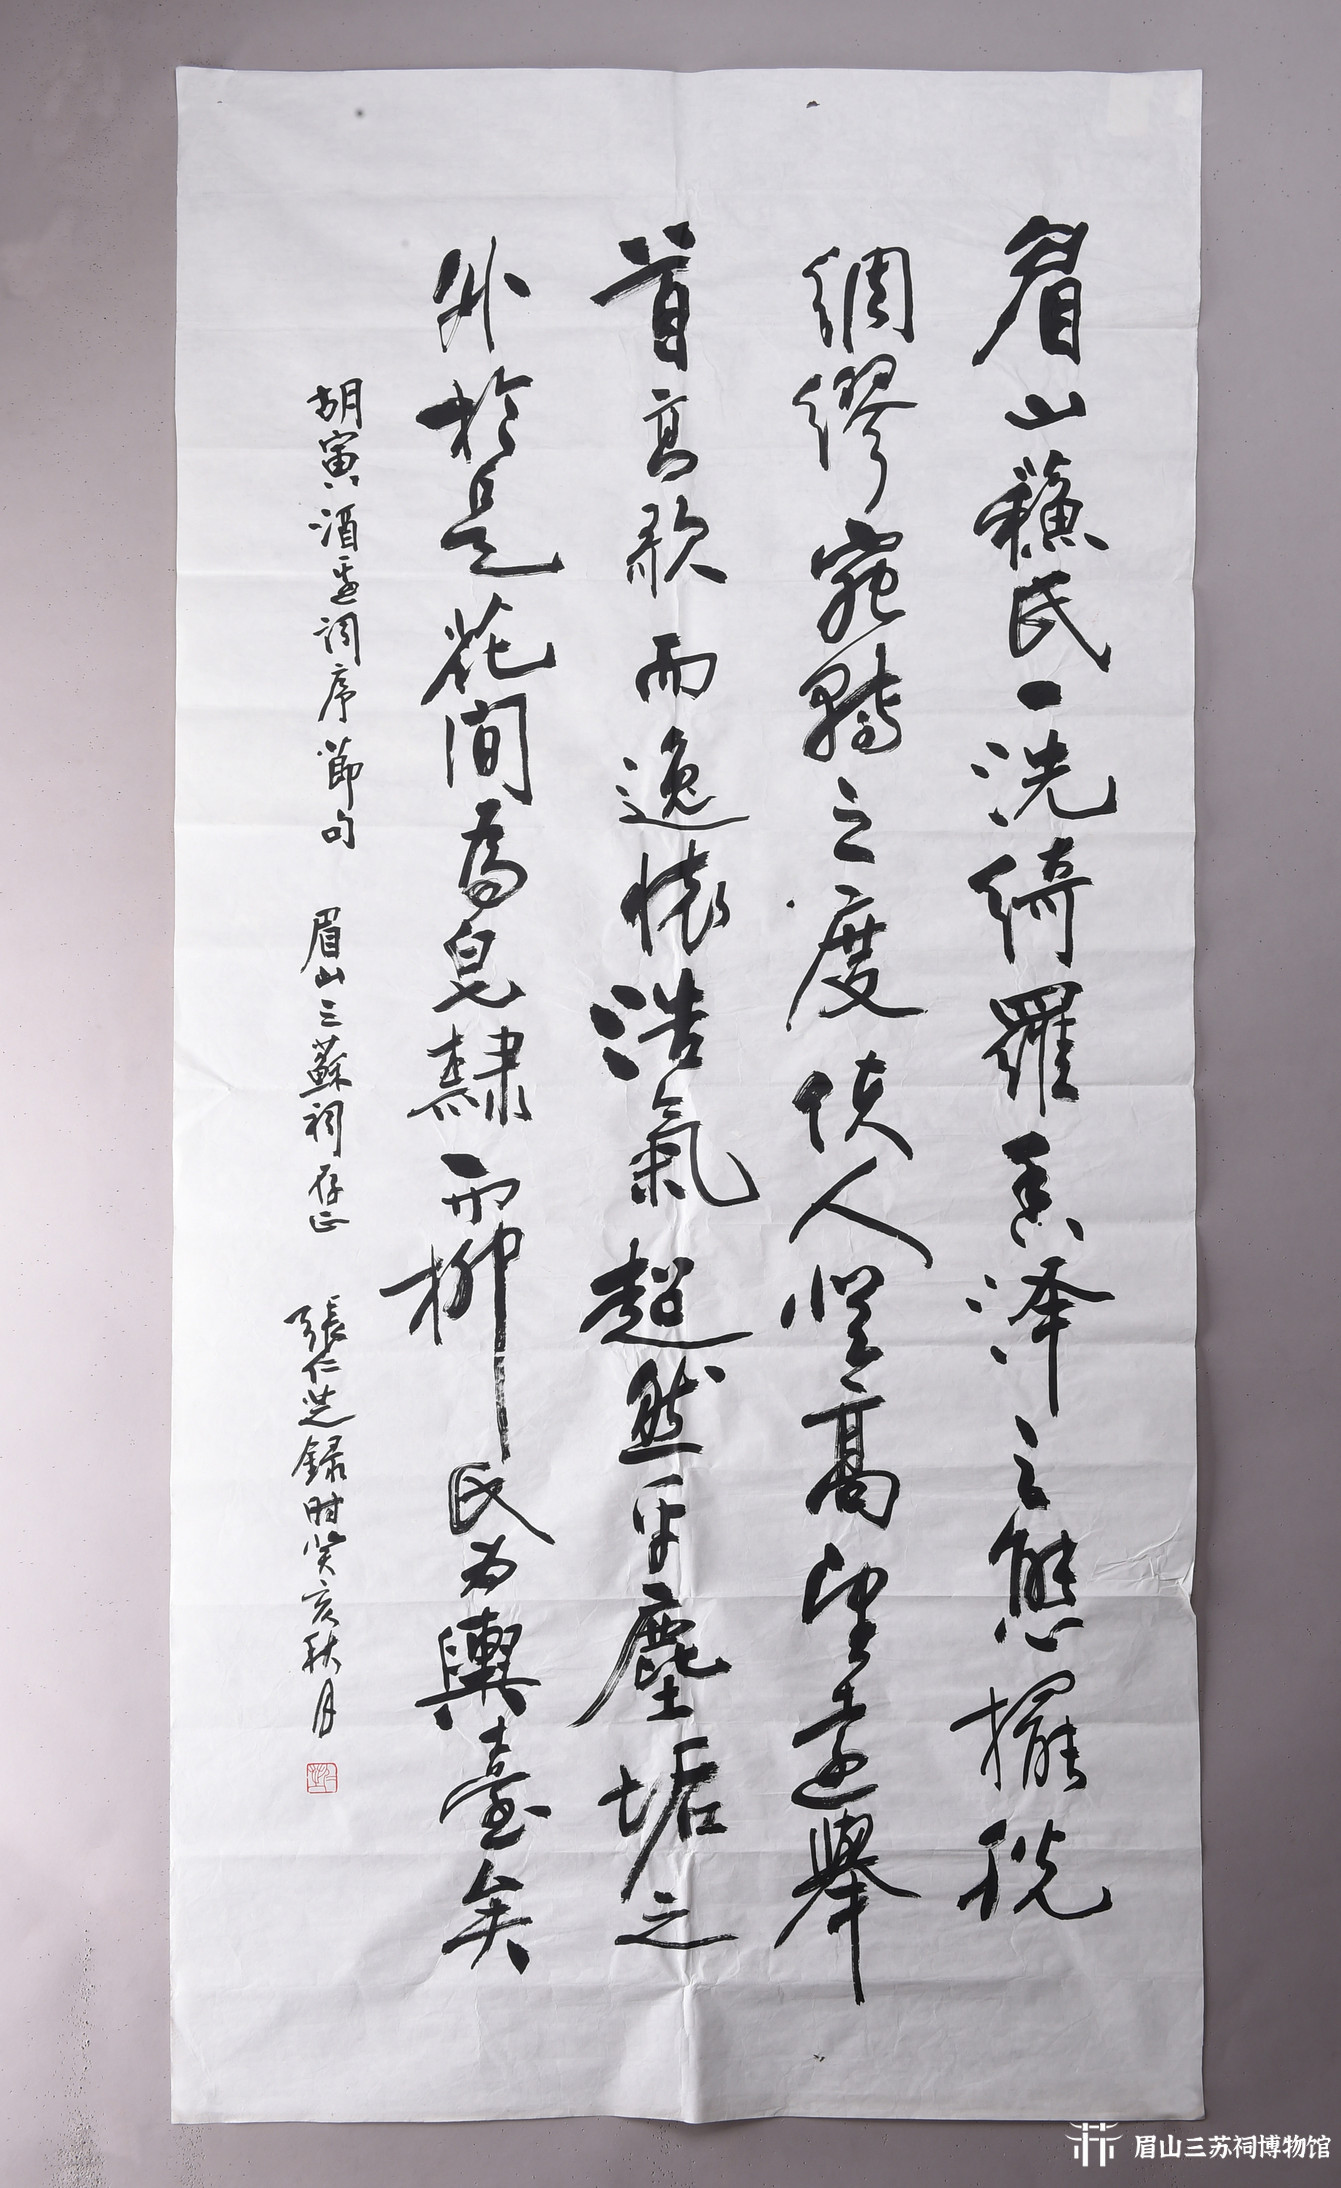 眉山蘇氏一洗綺羅香澤之態擺脫
綢繆宛轉之度使人登高望遠舉
首高歌而逸懷浩氣超然乎塵垢之
外於是花間為皂隸而柳氏為輿臺矣
胡寅酒邊詞序節句 眉山三蘇祠存正 張仁 錄时癸亥秋月
眉山三苏祠博物馆